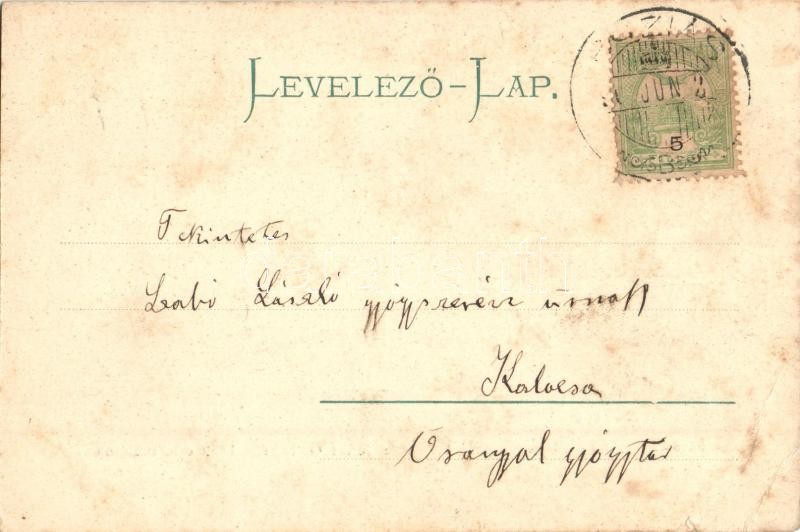 LEVELEZŐ-LAP.
JUN 2
5
Tekintetes
Szabó László gyógyszerész úrnak
Kalocsa
Őrangyal gyógytár